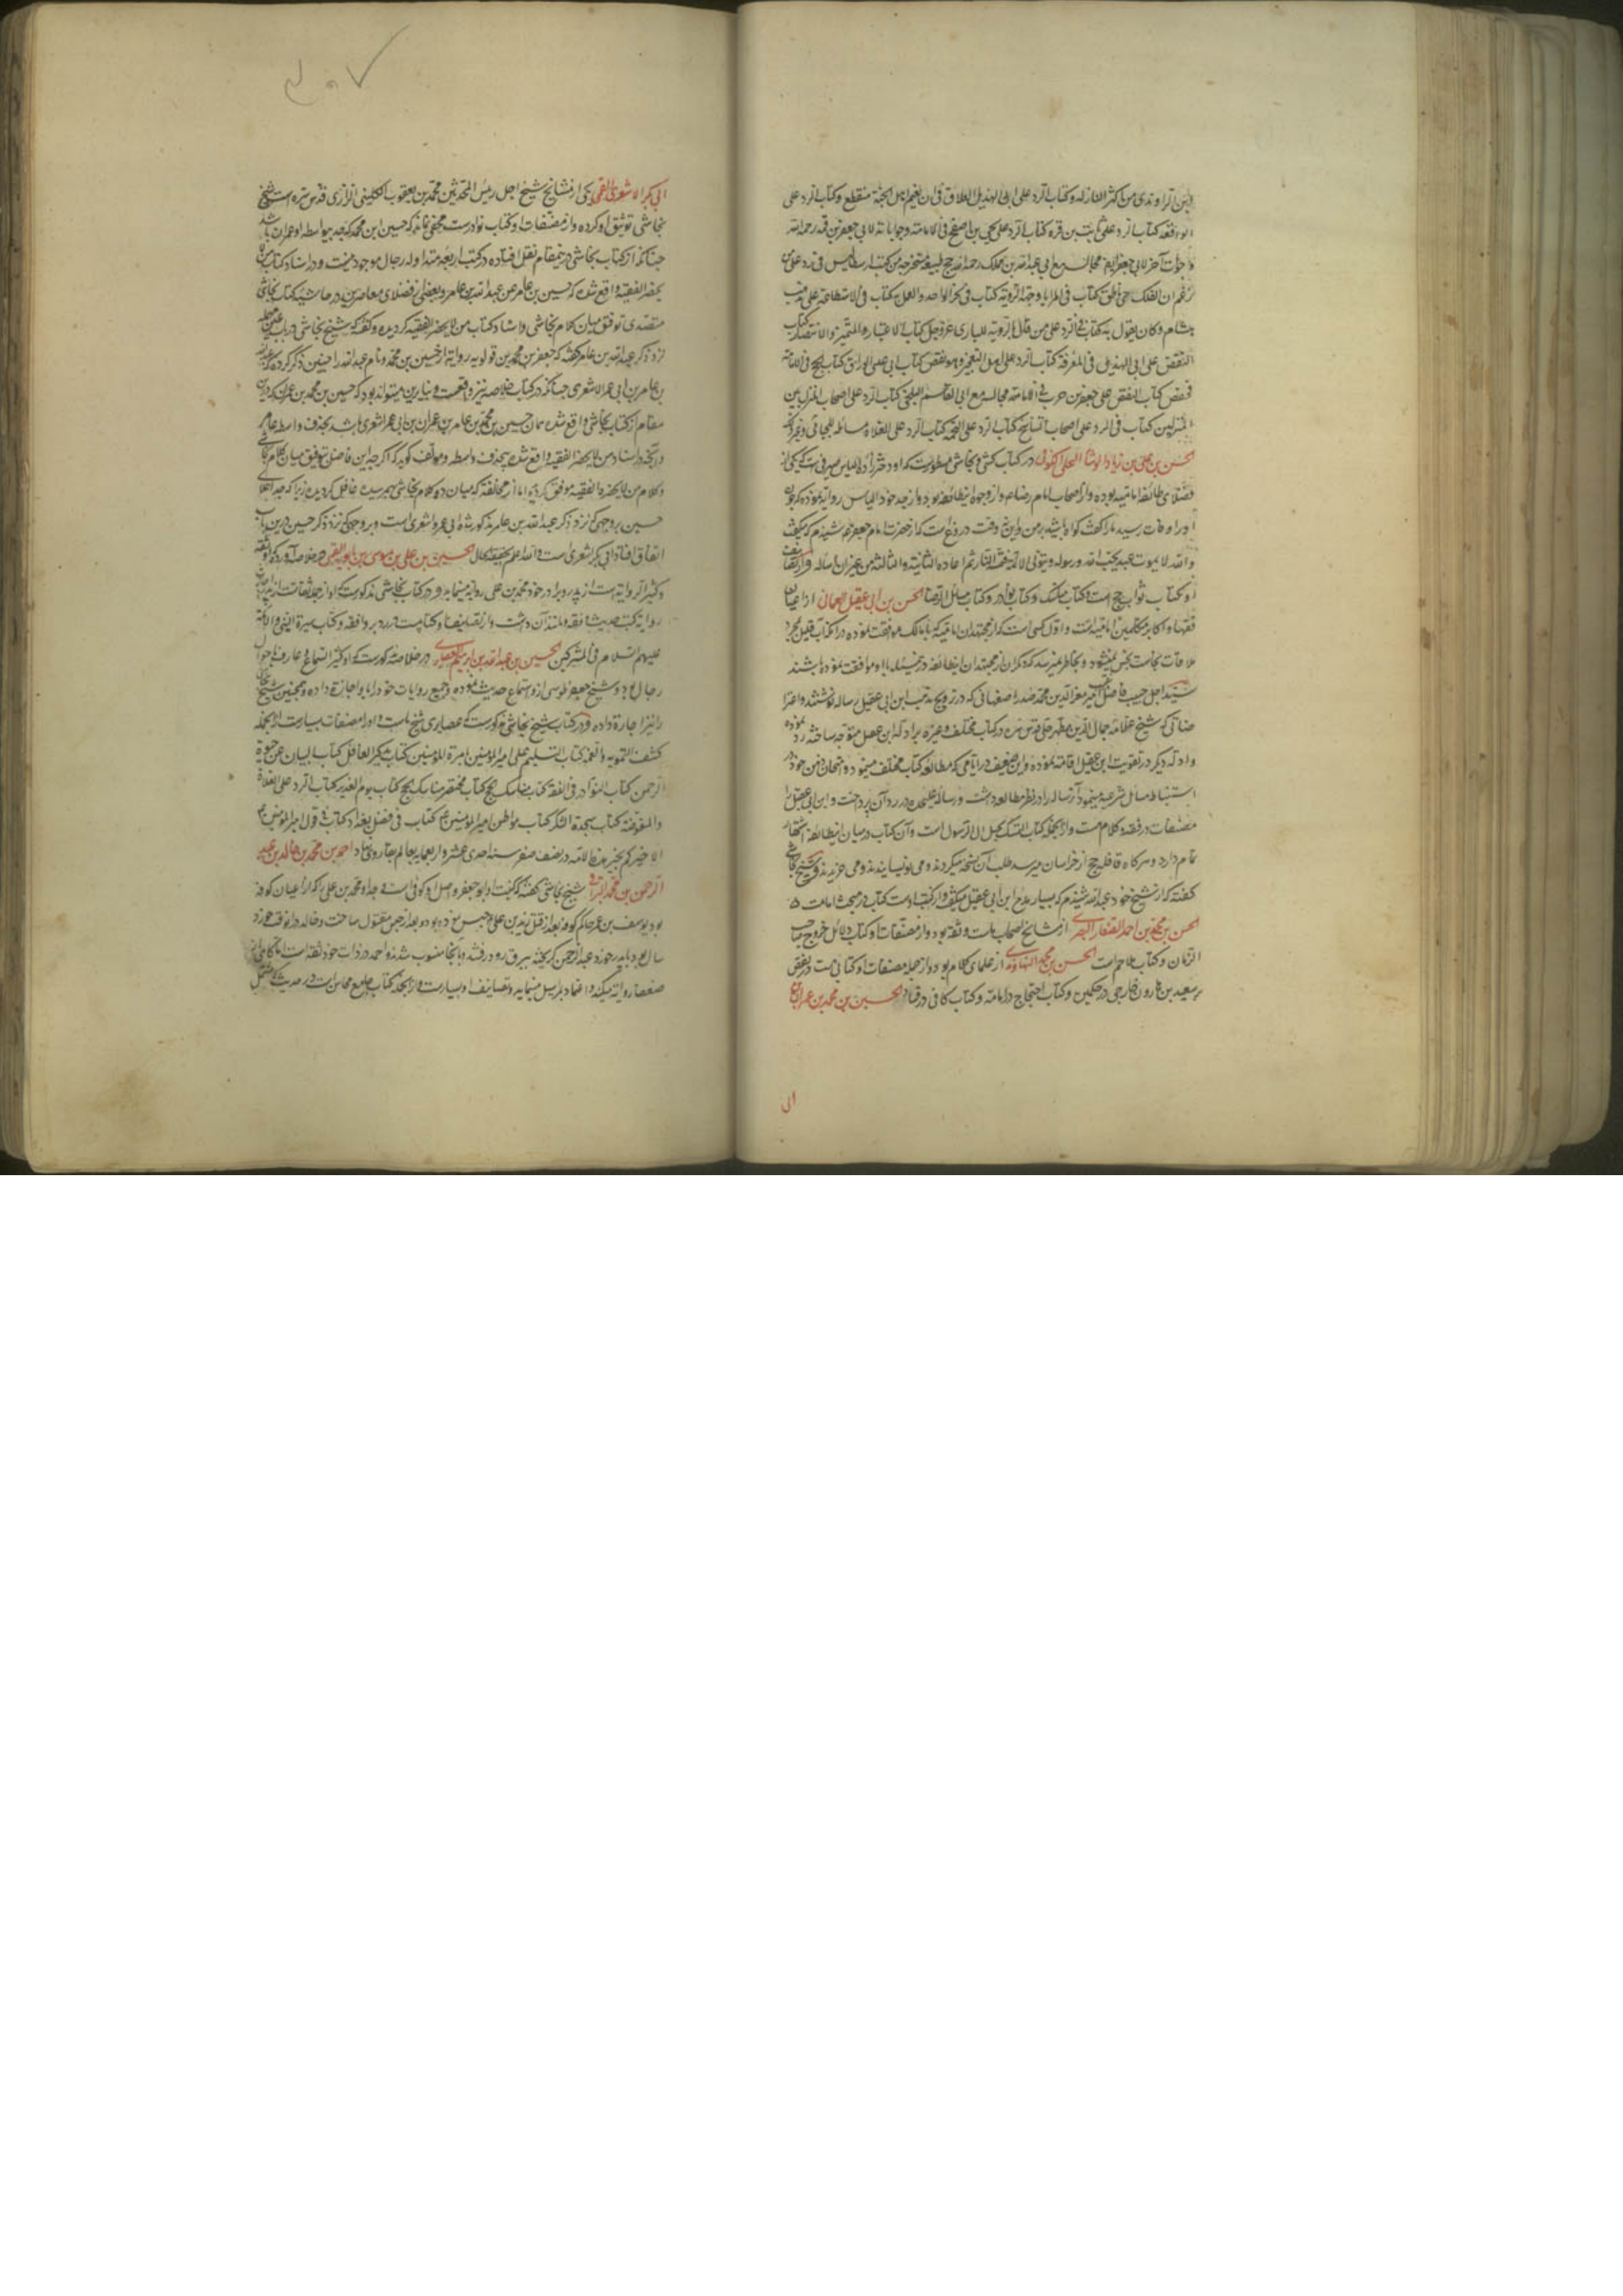 ابن الراوندی من اکثر المنازله وکتاب الرد علی ابی الهذیل العلاف فی ان نعیم اهل الجنة منقطع وکتاب الرد علی
الواقفه کتاب الرد علی ثابت بن قره کتاب الرد علی یحیی بن اصفح فی الامامة وجوابات لابی جعفر بن قبه رحمه الله
وجوابات آخر لابی جعفر ایضا مجالس مع ابی عبد الله بن مملک رحمه الله حج طبیعه مستخرجه من کتب ارسطالیس فی رد علی من
زعم ان الفلک حی ناطق کتاب فی المرایا وجهة الرویه کتاب فی خبر الواحد والعمل کتاب فی الاستطاعه علی مذهب
هشام وکان یقول به کتاب فی الرد علی من قال بالرویه للباری عز وجل کتاب الاعتبار والتمییز والانتصار کتاب
النقض علی ابی الهذیل فی المعرفة کتاب الرد علی اهل التعجیز وهو نقض کتاب ابی عیسی الوراق کتاب الحجج فی الامامة
کتاب النقض علی جعفر بن حرب فی الامامة مجالسه مع ابی القاسم البلخی کتاب الرد علی اصحاب المنزلة بین
المنزلتین کتاب فی الرد علی اصحاب التناسخ کتاب الرد علی المجسمه کتاب الرد علی الغلاة مسائل للجبائی وغیر ذلک
الحسن بن علی بن زیاد الوشا البجلی الکوفی در کتاب کشی ونجاشی مسطورست که او دخترزاده الیاس صیرفی ست که یکی از
فضلای طائفه امامیه بوده واز اصحاب امام رضا ع واز وجوه این طائفه بود واز جد خود الیاس روایة نموده که چون
او را وفات رسید ما را گفت گواه باشید بر من واین نه وقت دروغ است که از حضرت امام جعفر ع شنیدم که میگفت
والله لا یموت عبد یحب الله ورسوله ویتولی الائمة فتمسه النار ثم اعاده الثانیة والثالثة من غیر ان اساله
او کتاب ثواب حج است وکتاب مناسک وکتاب نوادر وکتاب مسائل الرضا الحسن بن ابی عقیل العمانی از اعیان
فقها واکابر متکلمین امامیه است و اول کسی است که از مجتهدان امامیه که با مالک موافقت نموده در آنکه آب قلیل بمجرد
ملاقات نجاست نجس نمیشود وبخاطر نمیرسد که دیگران از مجتهدان این طائفه در این مسئله با او موافقت نموده باشند
سید اجل حسیب فاضل امیر معز الدین محمد صدر اصفهانی که در ترویج مذهب ابن ابی عقیل رساله نوشتند واعترا
ضاتی که شیخ علامه جمال الدین مطهر حلی قدس سره در کتاب مختلف وغیره بر ادله ابن عقیل متوجه ساخته رد نموده
وادله دیگر در تقویت ابن عقیل اقامه نموده واین ضعیف در ایامی که مطالعه کتاب مختلف مینمود وامتحان ذهن خود در
استنباط مسائل شرعیه مینمود آن رساله را در نظر مطالعه داشت ورساله علیحده در رد آن پرداخت وابن ابی عقیل را
مصنفات در فقه وکلام هست واز آنجمله کتاب المتمسک بحبل آل الرسول است وآن کتاب در میان این طائفه اشتهار
تمام دارد وهرگاه قافله حج از خراسان میرسد طلب آن نسخه میکردند ومی نویسانیدند ومی خریدند وشیخ نجاشی
گفته که از شیخ خود عبد الله شنیدم که بسیار مدح ابن ابی عقیل میگفت واز کتب اوست کتاب در مبحث امامت
الحسن بن محمد بن احمد الصفار البصری از مشایخ اصحاب ماست وثقه بود واز مصنفات او کتاب دلائل خروج صاحب
الزمان وکتاب ملاحم است الحسن بن محمد النهاوندی از علمای کلام بود واز جمله مصنفات او کتابی ست در نقض
بر سعید بن هارون خارجی در حکمین وکتاب احتجاج در امامة وکتاب کافی در فساد الحسین بن محمد بن عمران بن
ابی
۷۰۴
ابی بکر الاشعری القمی یکی از مشایخ شیخ اجل رئیس المحدثین محمد بن یعقوب الکلینی الرازی قدس سره است شیخ
نجاشی توثیق او کرده واز مصنفات او کتاب نوادرست مخفی نماند که حسین ابن محمد که جد بیواسطه او عمران باشد
چنانکه از کتاب نجاشی در این مقام نقل افتاده در کتب اربعه متداوله رجال موجود نیست ودر اسناد کتاب من لا
یحضر الفقیه واقع شده که حسین بن عامر عن عبد الله بن عامر وبعضی از فضلای معاصرین در حاشیه کتاب نجاشی
متصدی توفیق میان کلام نجاشی واسناد کتاب من لا یحضر الفقیه گردیده وگفته که شیخ نجاشی در باب عین مهمله
نزد ذکر عبد الله بن عامر گفته که جعفر بن محمد بن قولویه روایة از حسین بن محمد ونام عبد الله را چنین ذکر کرده که عبد الله
بن عامر بن ابی عمر الاشعری چنانکه در کتاب خلاصه نیز واقعست وبنابرین میتواند بود که حسین بن محمد بن عمران که در این
مقام از کتاب نجاشی واقع شده همان حسین بن محمد بن عامر بن عمران بن ابی عمر اشعری باشد بحذف واسطه عامر
وآنچه در اسناد من لا یحضر الفقیه واقع شده بحذف واسطه ومولف گوید که اگرچه این فاضل بتوفیق میان کلام نجاشی
وکلام من لا یحضره الفقیه موفق گردیده اما از مخالفتی که میان دو کلام نجاشی بهم رسیده غافل گردیده زیرا که جد اعلای
حسین بر وجهی که نزد ذکر عبد الله بن عامر مذکور شده ابی عمر واشعری است وبر وجهی که نزد ذکر حسین درین باب
اتفاق افتاد ابی بکر اشعری است والله اعلم بحقیقة الحال الحسین بن علی بن موسی بن بابویه القمی در خلاصه آورده که او ثقه
وکثیر الروایة است از پدر وبرادر خود محمد بن علی روایة مینماید ودر کتاب نجاشی مذکورست که او از جمله ثقات
روایة کتب حدیث وفقه داشت واز تصنیفات او کتابیست در رد بر واقفه وکتاب سیرة النبی والائمة
علیهم السلام فی المشرکین الحسین بن عبد الله بن ابراهیم الغضایری در خلاصه مذکورست که او کثیر السماع وعارف باحوال
رجال بود وشیخ جعفر طوسی ازو استماع حدیث نموده وجمیع روایات خود را باو اجازة داده وهمچنین شیخ نجاشی
را نیز اجازة داده ودر کتاب شیخ نجاشی مذکورست که غضایری شیخ ماست واو را مصنفات بسیارست از آنجمله
کشف التمویه والغمه کتاب التسلیم علی امیر المومنین بامرة المومنین کتاب تذکیر العاقل کتاب البیان عن حبوة
الرحمن کتاب النوادر فی الفقه کتاب مناسک حج کتاب مختصر مناسک حج کتاب یوم الغدیر کتاب الرد علی الغلاة
والمفوضة کتاب سجدة الشکر کتاب مواطن امیر المومنین ع کتاب فی فضل بغداد کتاب فی قول امیر المومنین ع
الا اخبرکم بخیر هذه الامة در نصف صفر سنه احدی عشر واربعمایه بعالم بقا رو نهاد احمد بن محمد بن خالد بن عبد
الرحمن بن محمد البرقی شیخ نجاشی گفته که کنیت او ابو جعفر واصل او کوفی است وجد او محمد بن علی را که از اعیان کوفه
بود یوسف بن عمر حاکم کوفه بعد از قتل زید بن علی ع حبس نموده بود وبعد از حبس مقتول ساخت وخالد در آنوقت خرد
سال بود با پدر خود عبد الرحمن گریخته ببرق رود رفتند وبآنجا منسوب شدند واحمد در ذات خود ثقه است اما گاهی از
ضعفا روایة میکند واعتماد بمراسیل مینماید وتصانیف او بسیارست واز آنجمله کتاب جامع محاسن است در حدیث که مشتمل